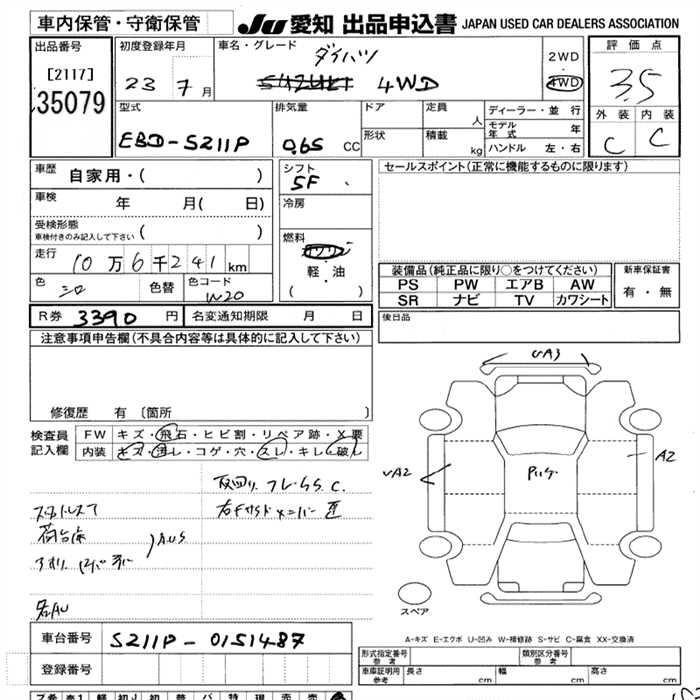 車内保管・守衛保管
JU 愛知 出品申込書 JAPAN USED CAR DEALERS ASSOCIATION
出品番号
[2117]
35079
初度登録年月
23 7 月
車名・グレード
ダイハツ
4WD
2WD
4WD
評価点
3.5
外装 内装
C C
型式
EBD-S211P
排気量
0.65 CC
ドア
形状
定員 人
積載 kg
ディーラー・並 行
モデル年式 年
ハンドル 左・右
車歴
自家用・( )
車検 年 月( 日)
受検形態
車検付きのみ記入して下さい ( )
走行 10万6千241km
色 シロ 色替 色コード W20
シフト
5F
冷房
燃料
ガソリン
軽・油
( )
セールスポイント(正常に機能するものに限ります)
装備品(純正品に限り○をつけてください)
PS PW エアB AW
SR ナビ TV カワシート
新車保証書
有・無
後日品
R券 3390 円 名変通知期限 月 日
注意事項申告欄(不具合内容等は具体的に記入して下さい)
修復歴 有 [箇所 ]
検査員記入欄
FW キズ・飛石・ヒビ割・リペア跡・X要
内装 キズ・汚レ・コゲ・穴・スレ・キレ・破レ
A.U.S
UA3
UA2
A2
スペア
A-キズ E-エクボ U-凹み W-補修跡 S-サビ C-腐食 XX-交換済
車台番号 S211P-0151487
登録番号
形式指定番号 参考
類別区分番号 参考
車庫証明用 参考 長さ cm 幅 cm 高さ cm